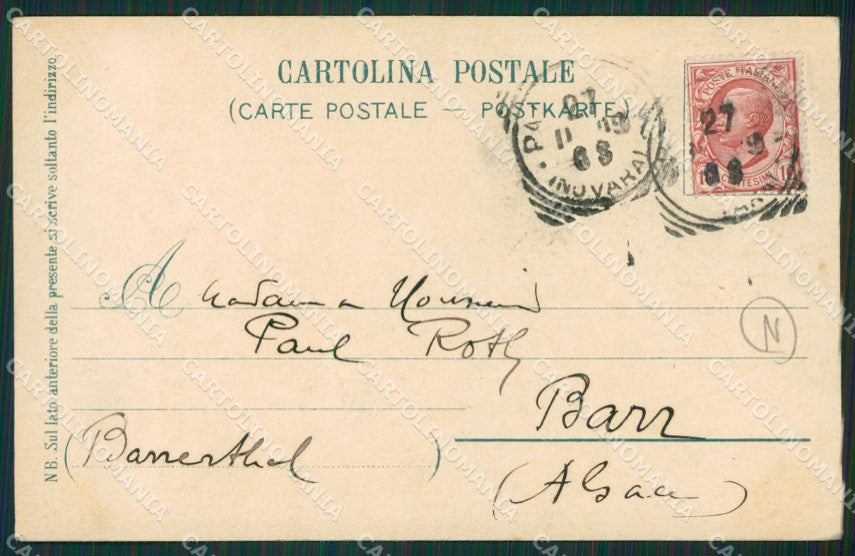 CARTOLINA POSTALE
(CARTE POSTALE — POSTKARTE)
POSTE ITALIANE
CENTESIMI 10
27
(NOVARA)
27
N
A Madame Monsieur
Paul Roth
Barr
(Barrerthal)
(Alsace)
N B. Sul lato anteriore della presente si scrive soltanto l'indirizzo
CARTOLINOMANIA